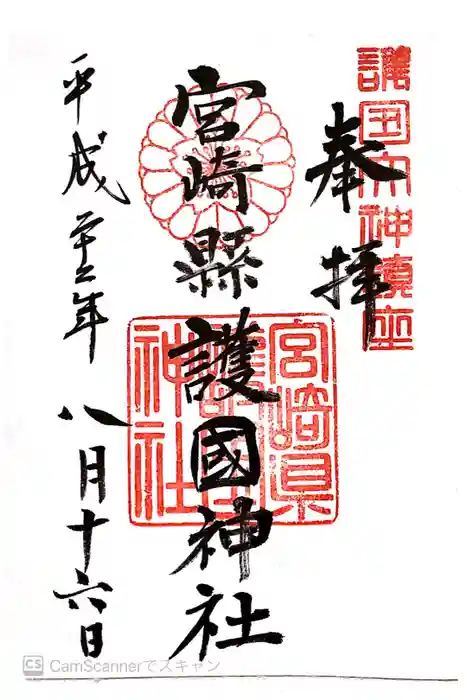 護国大神鎮座
奉拝
宮崎縣護國神社
宮崎県
護国
神社
平成二十二年八月十六日
CS CamScannerでスキャン